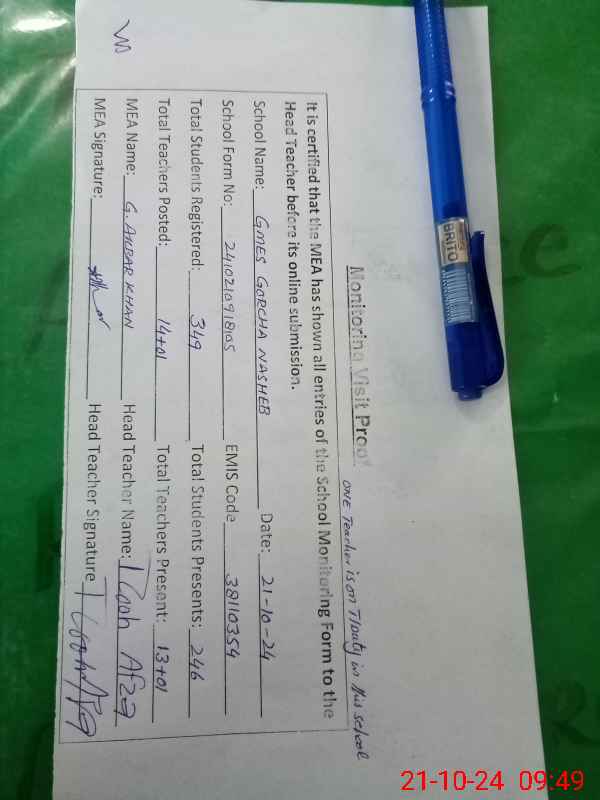 Monitoring Visit Proof
ONE Teacher is on T/Duty in this school
It is certified that the MEA has shown all entries of the School Monitoring Form to the
Head Teacher before its online submission.
School Name: GMES GORCHA NASHEB Date: 21-10-24
School Form No: 2410210918105 EMIS Code 38110354
Total Students Registered: 349 Total Students Presents: 246
Total Teachers Posted: 14+01 Total Teachers Present: 13+01
MEA Name: G. AKBAR KHAN Head Teacher Name:
MEA Signature: Head Teacher Signature
BRITO
21-10-24 09:49